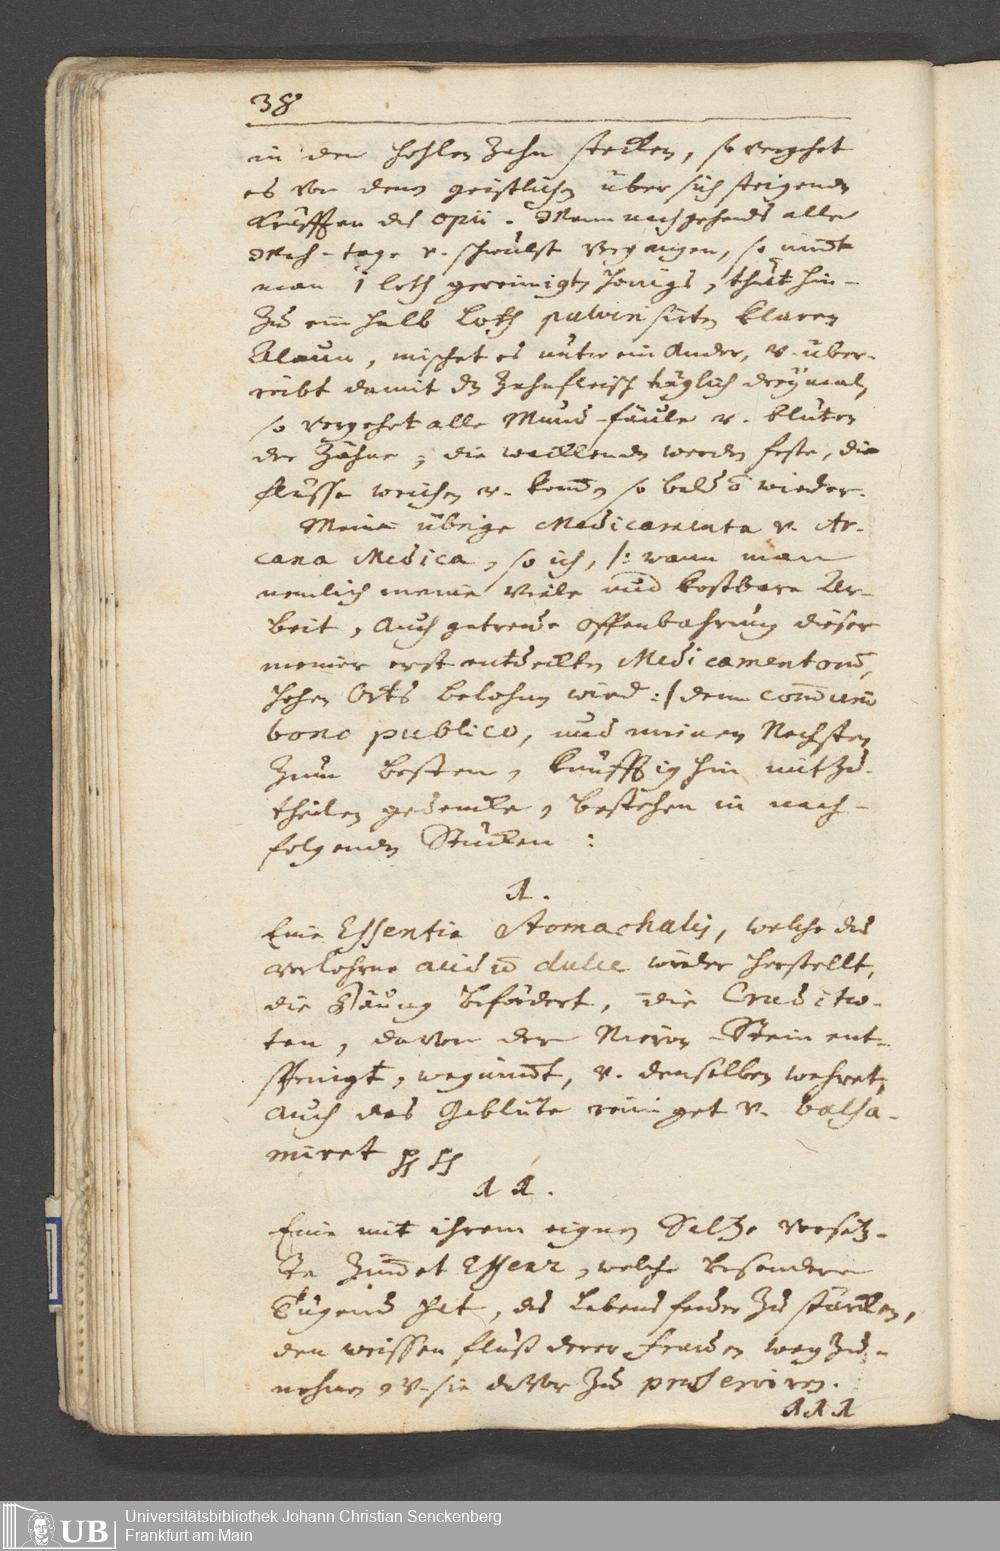 38
in den hohlen Zahn stecken, so vergehet
es von denen geistlichen über sich steigenden
Kräfften des Opii. Wann nachgehends alle
Weh-tage v. schwulst vergangen, so nim̅t
man 1 loth gereinigten honigs, thut hin-
zu ein halb Loth pulverisirten klaren
Alaun, mischet es unter ein Ander, v. über-
reibt damit dz Zahnfleisch täglich dreymal,
so vergehet alle Mund-fäule v. bluten
der Zähne, die wacklenden werden feste, die
flüsse weichen v. kom̅en so bald ō wieder.
Meine übrige Medicamenta v. Ar-
cana Medica, so ich, /: wann man
nemlich meine viele und kostbare Ar-
beit, auch getreue offenbahrung dieser
meiner erst entdeckten Medicamentorū,
hohen Orts belohnen wird :/ dem com̅uni
bono publico, und meinen Nechsten
zum besten, künfftig hin mitzu-
theilen gedencke, bestehen in nach-
folgenden Stücken :
1.
Eine Essentia Stomachalis, welche das
verlohrne acidū dulce wieder herstellt,
die Däung befördert, die Crudité-
ten, davon der Nieren-Stein ent-
springt, wegnim̅t, v. denselben wehret,
auch das Geblüte reiniget v. balsa-
miret pp
11.
Eine mit ihrem eignen Saltze versetz-
te Zim̅et Essenz, welche besondere
Tugend hat, das Lebens feuer zu stärcken,
den weissen fluß derer Frauen weg zu-
nehmen, v. sie davor zu praeserviren.
111
Universitätsbibliothek Johann Christian Senckenberg
Frankfurt am Main
UB